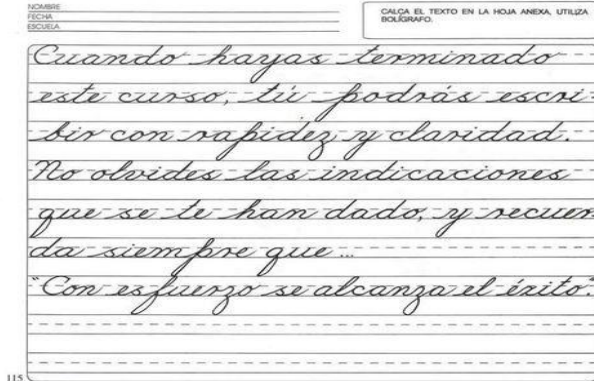 NOMBRE
FECHA
ESCUELA
CALCA EL TEXTO EN LA HOJA ANEXA, UTILIZA
BOLÍGRAFO.
Cuando hayas terminado
este curso, tú podrás escri-
bir con rapidez y claridad.
No olvides las indicaciones
que se te han dado, y recuer
da siempre que...
"Con esfuerzo se alcanza el éxito".
115